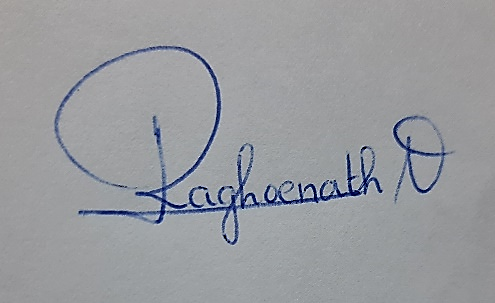 Raghoenath D